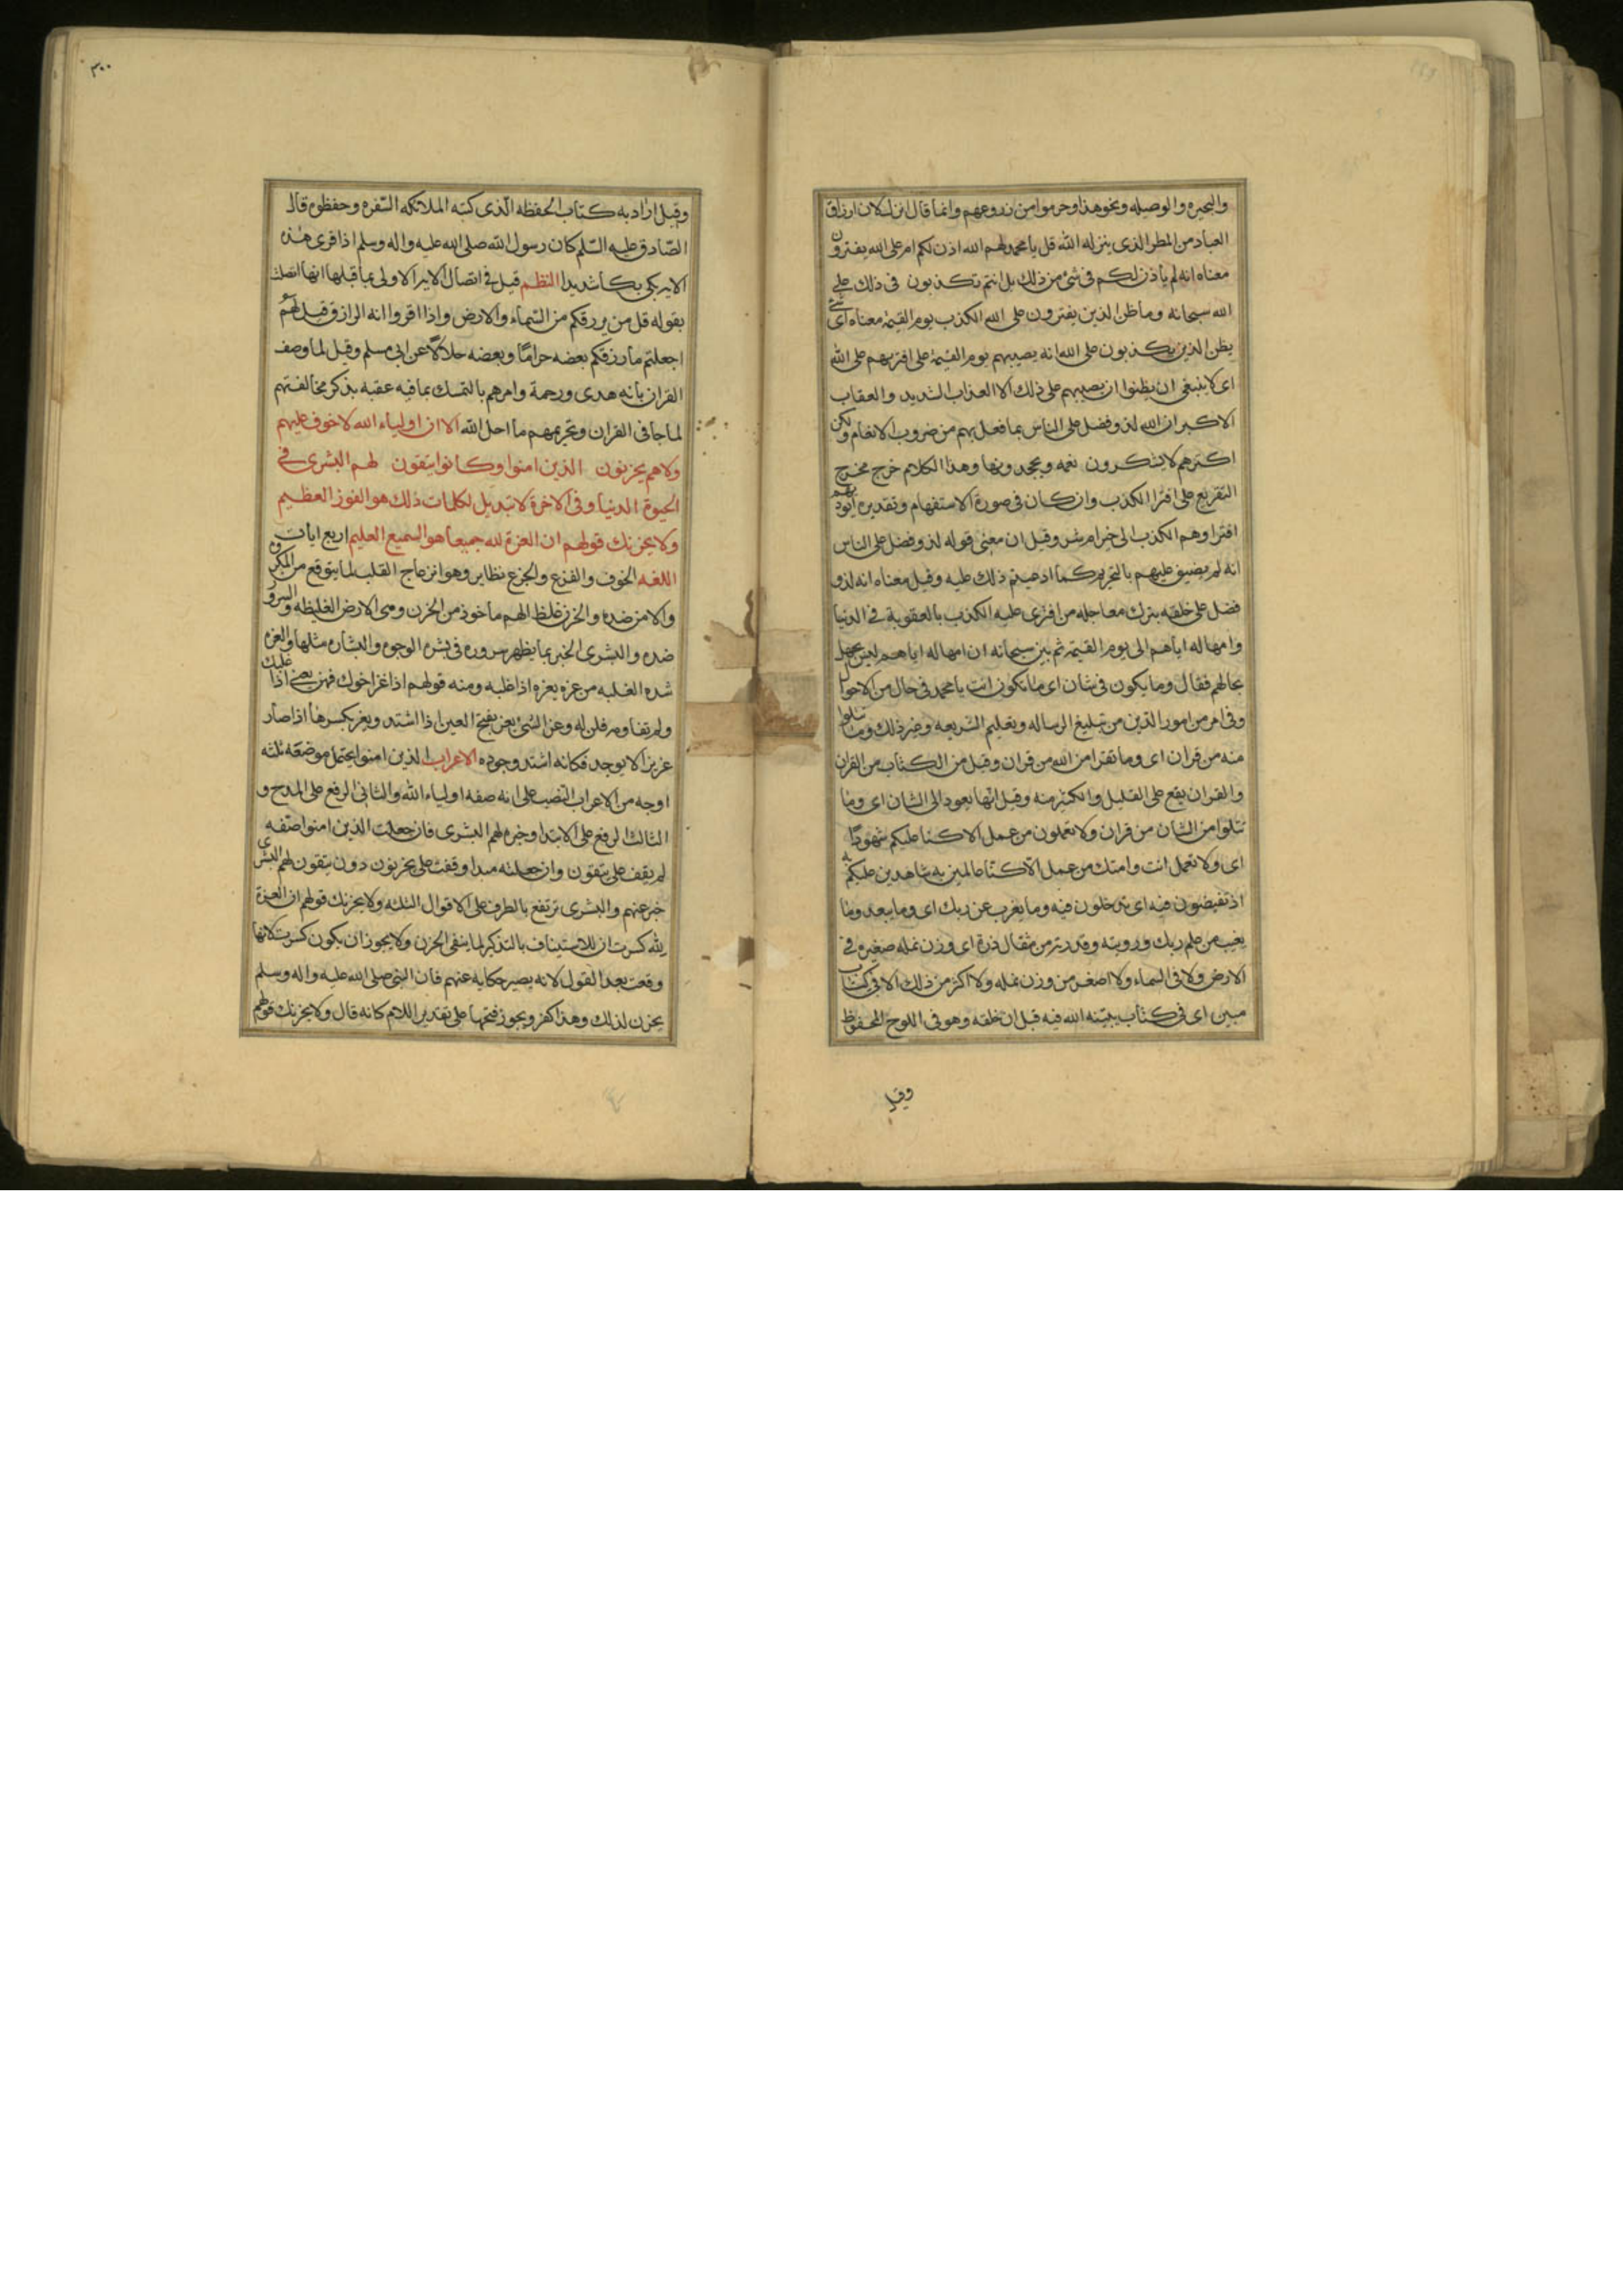 والبحيره والوصيله ونحوهذا وحرموا من زروعهم وانما قال انزل لان ارزاق
العباد من المطر الذى ينزله الله قل يا محمد لهم الله اذن لكم ام على الله يفترون
معناه انه لم ياذن لكم فى شئ من ذلك بل انتم تكذبون فى ذلك على
الله سبحانه وما ظن الذين يفترون على الله الكذب يوم القيمة معناه اى شئ
يظن الذين يكذبون على الله انه يصيبهم يوم القيمة على افترائهم على الله
اى لا ينبغى ان يظنوا ان يصيبهم على ذلك الا العذاب الشديد والعقاب
الاكبر ان الله لذو فضل على الناس بما فعل بهم من ضروب الانعام ولكن
اكثرهم لا يشكرون نعمه ويجحدونها وهذا الكلام خرج مخرج
التقريع على افترا الكذب وان كان فى صورة الاستفهام وتقديره ايوديهم
افتراوهم الكذب الى خير ام شر وقيل ان معنى قوله لذو فضل على الناس
انه لم يضيق عليهم بالتحريم كما ادعيتم ذلك عليه وقيل معناه انه لذو
فضل على خلقه بترك معاجله من افترى عليه الكذب بالعقوبة فى الدنيا
وامهاله اياهم الى يوم القيمة ثم بين سبحانه ان امهاله اياهم ليس لجهل
بحالهم فقال وما يكون فى شان اى ما تكون انت يا محمد فى حال من الاحوال
وفى امر من امور الدين من تبليغ الرساله وتعليم الشريعه وغير ذلك وما تتلوا
منه من قران اى وما تقرا من الله من قران وقيل من الكتاب من القران
والقران يقع على القليل والكثير منه وقيل انها يعود الى الشان اى وما
تتلوا من الشان من قران ولا تعملون من عمل الا كنا عليكم شهودًا
اى ولا تعمل انت وامتك من عمل الا كنا عالمين به شاهدين عليكم به
اذ تفيضون فيه اى تدخلون فيه وما يعزب عن ربك اى وما يبعد وما
يغيب عن علم ربك ورويته وقدرته من مثقال ذرة اى وزن نمله صغيره فى
الارض ولا فى السماء ولا اصغر من وزن نمله ولا اكبر من ذلك الا فى كتاب
مبين اى فى كتاب بينه الله فيه قبل ان خلقه وهو فى اللوح المحفوظ
وقيل
٣٠٠
وقيل اراد به كتاب الحفظه الذى كتبه الملائكه السفره وحفظوه قال
الصادق عليه السلم كان رسول الله صلى الله عليه واله وسلم اذا قرى هذه
الاية بكى بكاء شديدا النظم قيل فى اتصال الاية الاولى بما قبلها انها اتصلت
بقوله قل من يرزقكم من السماء والارض واذا اقروا انه الرازق قيل لهم
اجعلتم ما رزقكم بعضه حرامًا وبعضه حلالًا عن ابى مسلم وقيل لما وصف
القران بانه هدى ورحمة وامرهم بالتمسك بما فيه عقبه بذكر مخالفتهم
لما جا فى القران وتحريمهم ما احل الله الا ان اولياء الله لا خوف عليهم
ولا هم يحزنون الذين امنوا وكانوا يتقون لهم البشرى فى
الحيوة الدنيا وفى الاخرة لا تبديل لكلمات ذلك هو الفوز العظيم
ولا يحزنك قولهم ان العزة لله جميعا هو السميع العليم اربع ايات
اللغه الخوف والفزع والجزع نظاير وهو انزعاج القلب لما يتوقع من المكروه
والامن ضده والحزن غلظ الهم ماخوذ من الحزن وهى الارض الغليظه والسرور
ضده والبشرى الخبر بما يظهر سروره فى بشره الوجوه والبشاره مثلها والعزه
شده الغلبه من عزه يعزه اذا غلبه ومنه قولهم اذا عز اخوك فهن يعنى اذا غلبك
ولم تقاومه فلن له وعز الشئ يعز بفتح العين اذا اشتد ويعز بكسرها اذا صار
عزيزا لا يوجد فكانه اشتد وجوده الاعراب الذين امنوا يحتمل موضعه ثلثه
اوجه من الاعراب النصب على انه صفه اولياء الله والثانى الرفع على المدح و
الثالث الرفع على الابتدا وخبره لهم البشرى فان جعلت الذين امنوا صفه
لم يقف على يتقون وان جعلته مبدا وقفت على يحزنون دون يتقون لهم البشرى
خبر عنهم والبشرى ترتفع بالظرف على الاقوال الثلثه ولا يحزنك قولهم ان العزة
لله كسرت ان للاستيناف بالتذكير لما ينفى الحزن ولا يجوز ان يكون كسرت لانها
وقعت بعد القول لانه يصير حكايه عنهم فان النبى صلى الله عليه واله وسلم
يحزن لذلك وهذا كفر ويجوز فتحها على تقدير اللام كانه قال ولا يحزنك قولهم